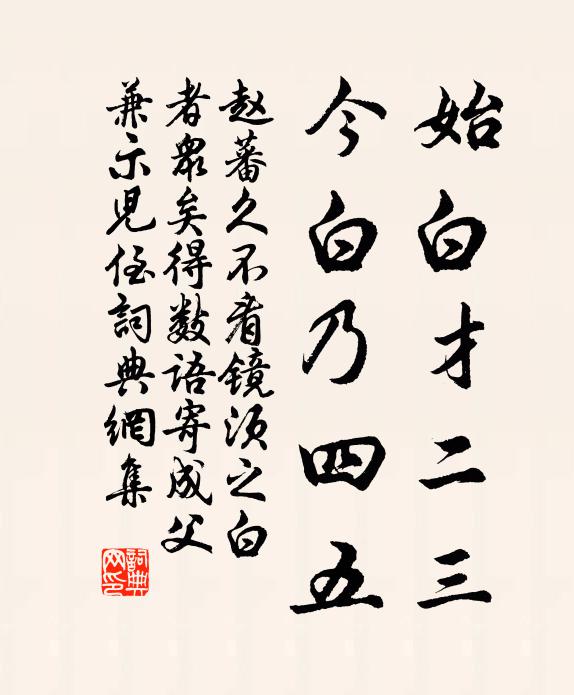 始白才二三
今白乃四五
赵蕃久不看镜须之白
者眾矣得数语寄成父
兼示児侄詞典網集
詞典
网印